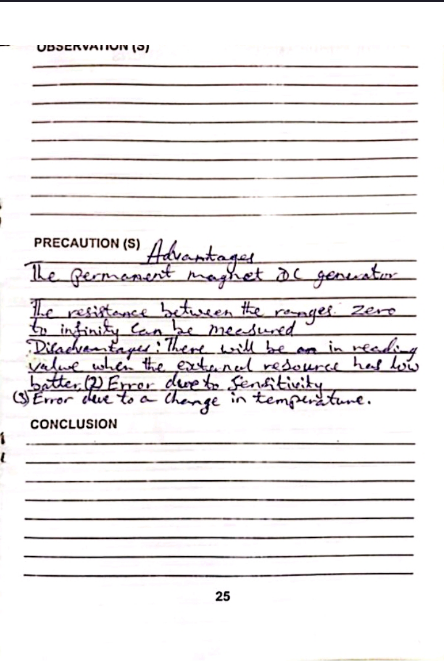 OBSERVATION (S)
PRECAUTION (S) Advantages
The permanent magnet DC generator
The resistance between the ranges zero
to infinity can be measured
Disadvantages: There will be an in reading
value when the external resource has low
batter, (2) Error due to Sensitivity
(3) Error due to a change in temperature.
CONCLUSION
25